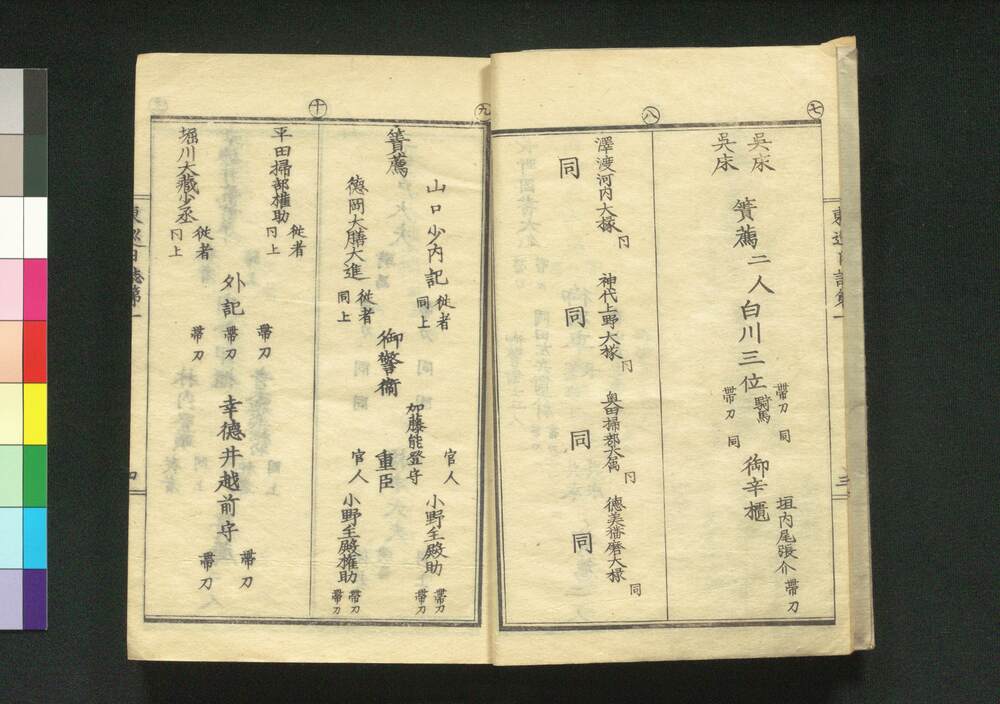 七
呉床
呉床
簀薦二人
白川三位
帯刀
騎馬
帯刀
同
同
御辛櫃
垣内尾張介
帯刀
八
澤渡河内大掾
同
神代上野大掾
同
奥田掃部大属
同
徳美播磨大掾
同
同
九
簀薦
山口少内記
従者
同上
徳岡大膳大進
従者
同上
御警衛
加藤能登守
重臣
官人
小野主殿助
帯刀
帯刀
官人
小野主殿権助
帯刀
帯刀
十
平田掃部権助
従者
同上
堀川大蔵少丞
従者
同上
外記
帯刀
帯刀
帯刀
幸徳井越前守
帯刀
帯刀
東巡日誌第一
三
東巡日誌第一
四